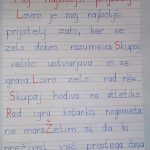 Moj najboljši prijatelj
Lovro je moj najboljši
prijatelj zato, ker se
zelo dobro razumeva. Skupaj
veliko ustvarjava in se
igrava. Lovro zelo rad riše.
Skupaj hodiva na atletiko.
Rad igra košarko, nogometa
ne mara. Želim si, da bi
preživel več prostega časa